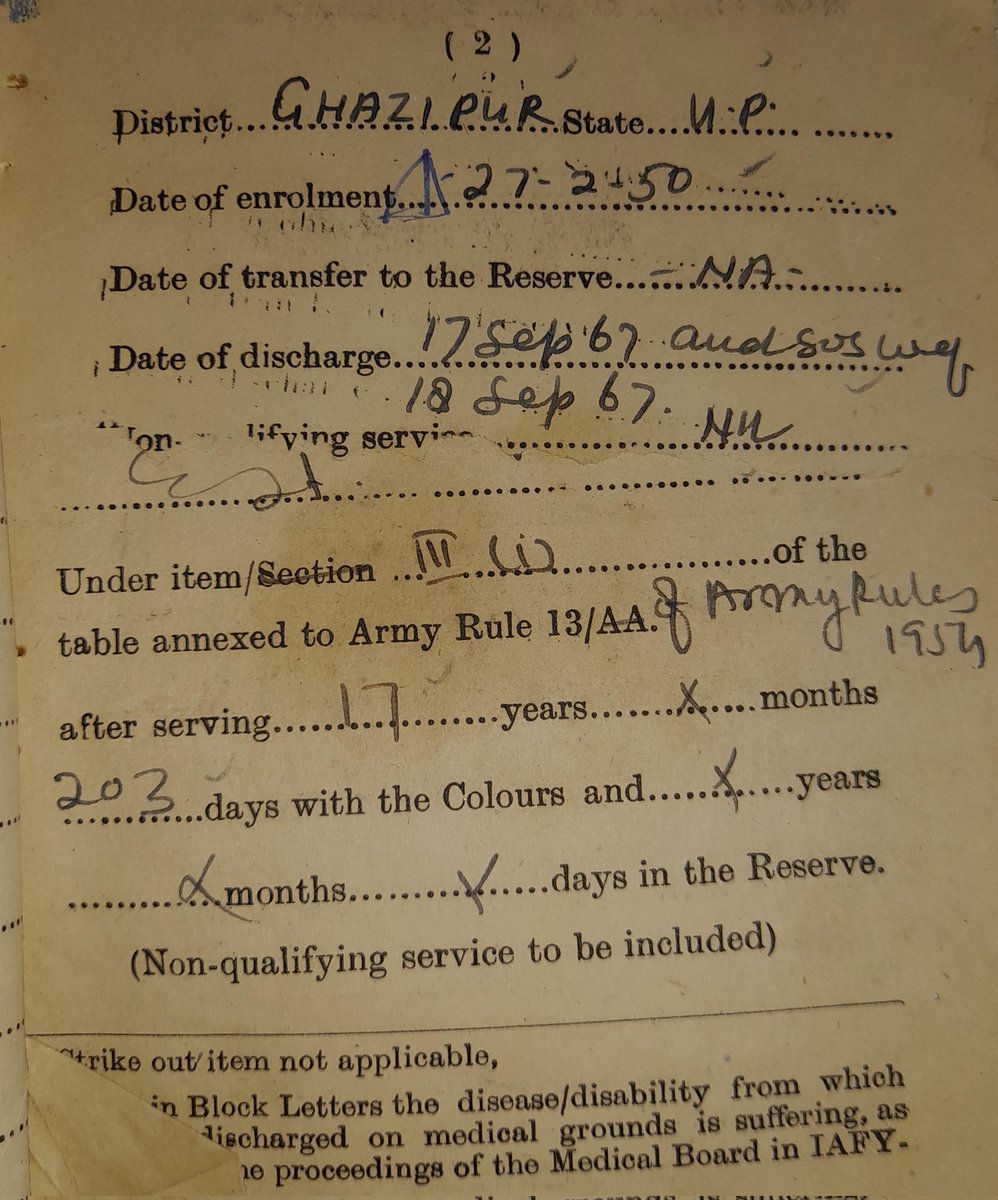 ( 2 )
District...GHAZIPUR...State....U.P..........
Date of enrolment....27-2-50........
Date of transfer to the Reserve...-NA-.........
Date of discharge...17 Sep 67 and SOS wef
18 Sep 67.
lifying service.......NIL.........
Under item/Section ...III (i)...............of the
table annexed to Army Rule 13/AA. of Army Rules
1954
after serving......17........years.......x.....months
203...days with the Colours and......x.....years
..........x.months..........x.....days in the Reserve.
(Non-qualifying service to be included)
Strike out item not applicable,
in Block Letters the disease/disability from which
discharged on medical grounds is suffering, as
he proceedings of the Medical Board in IAFY-